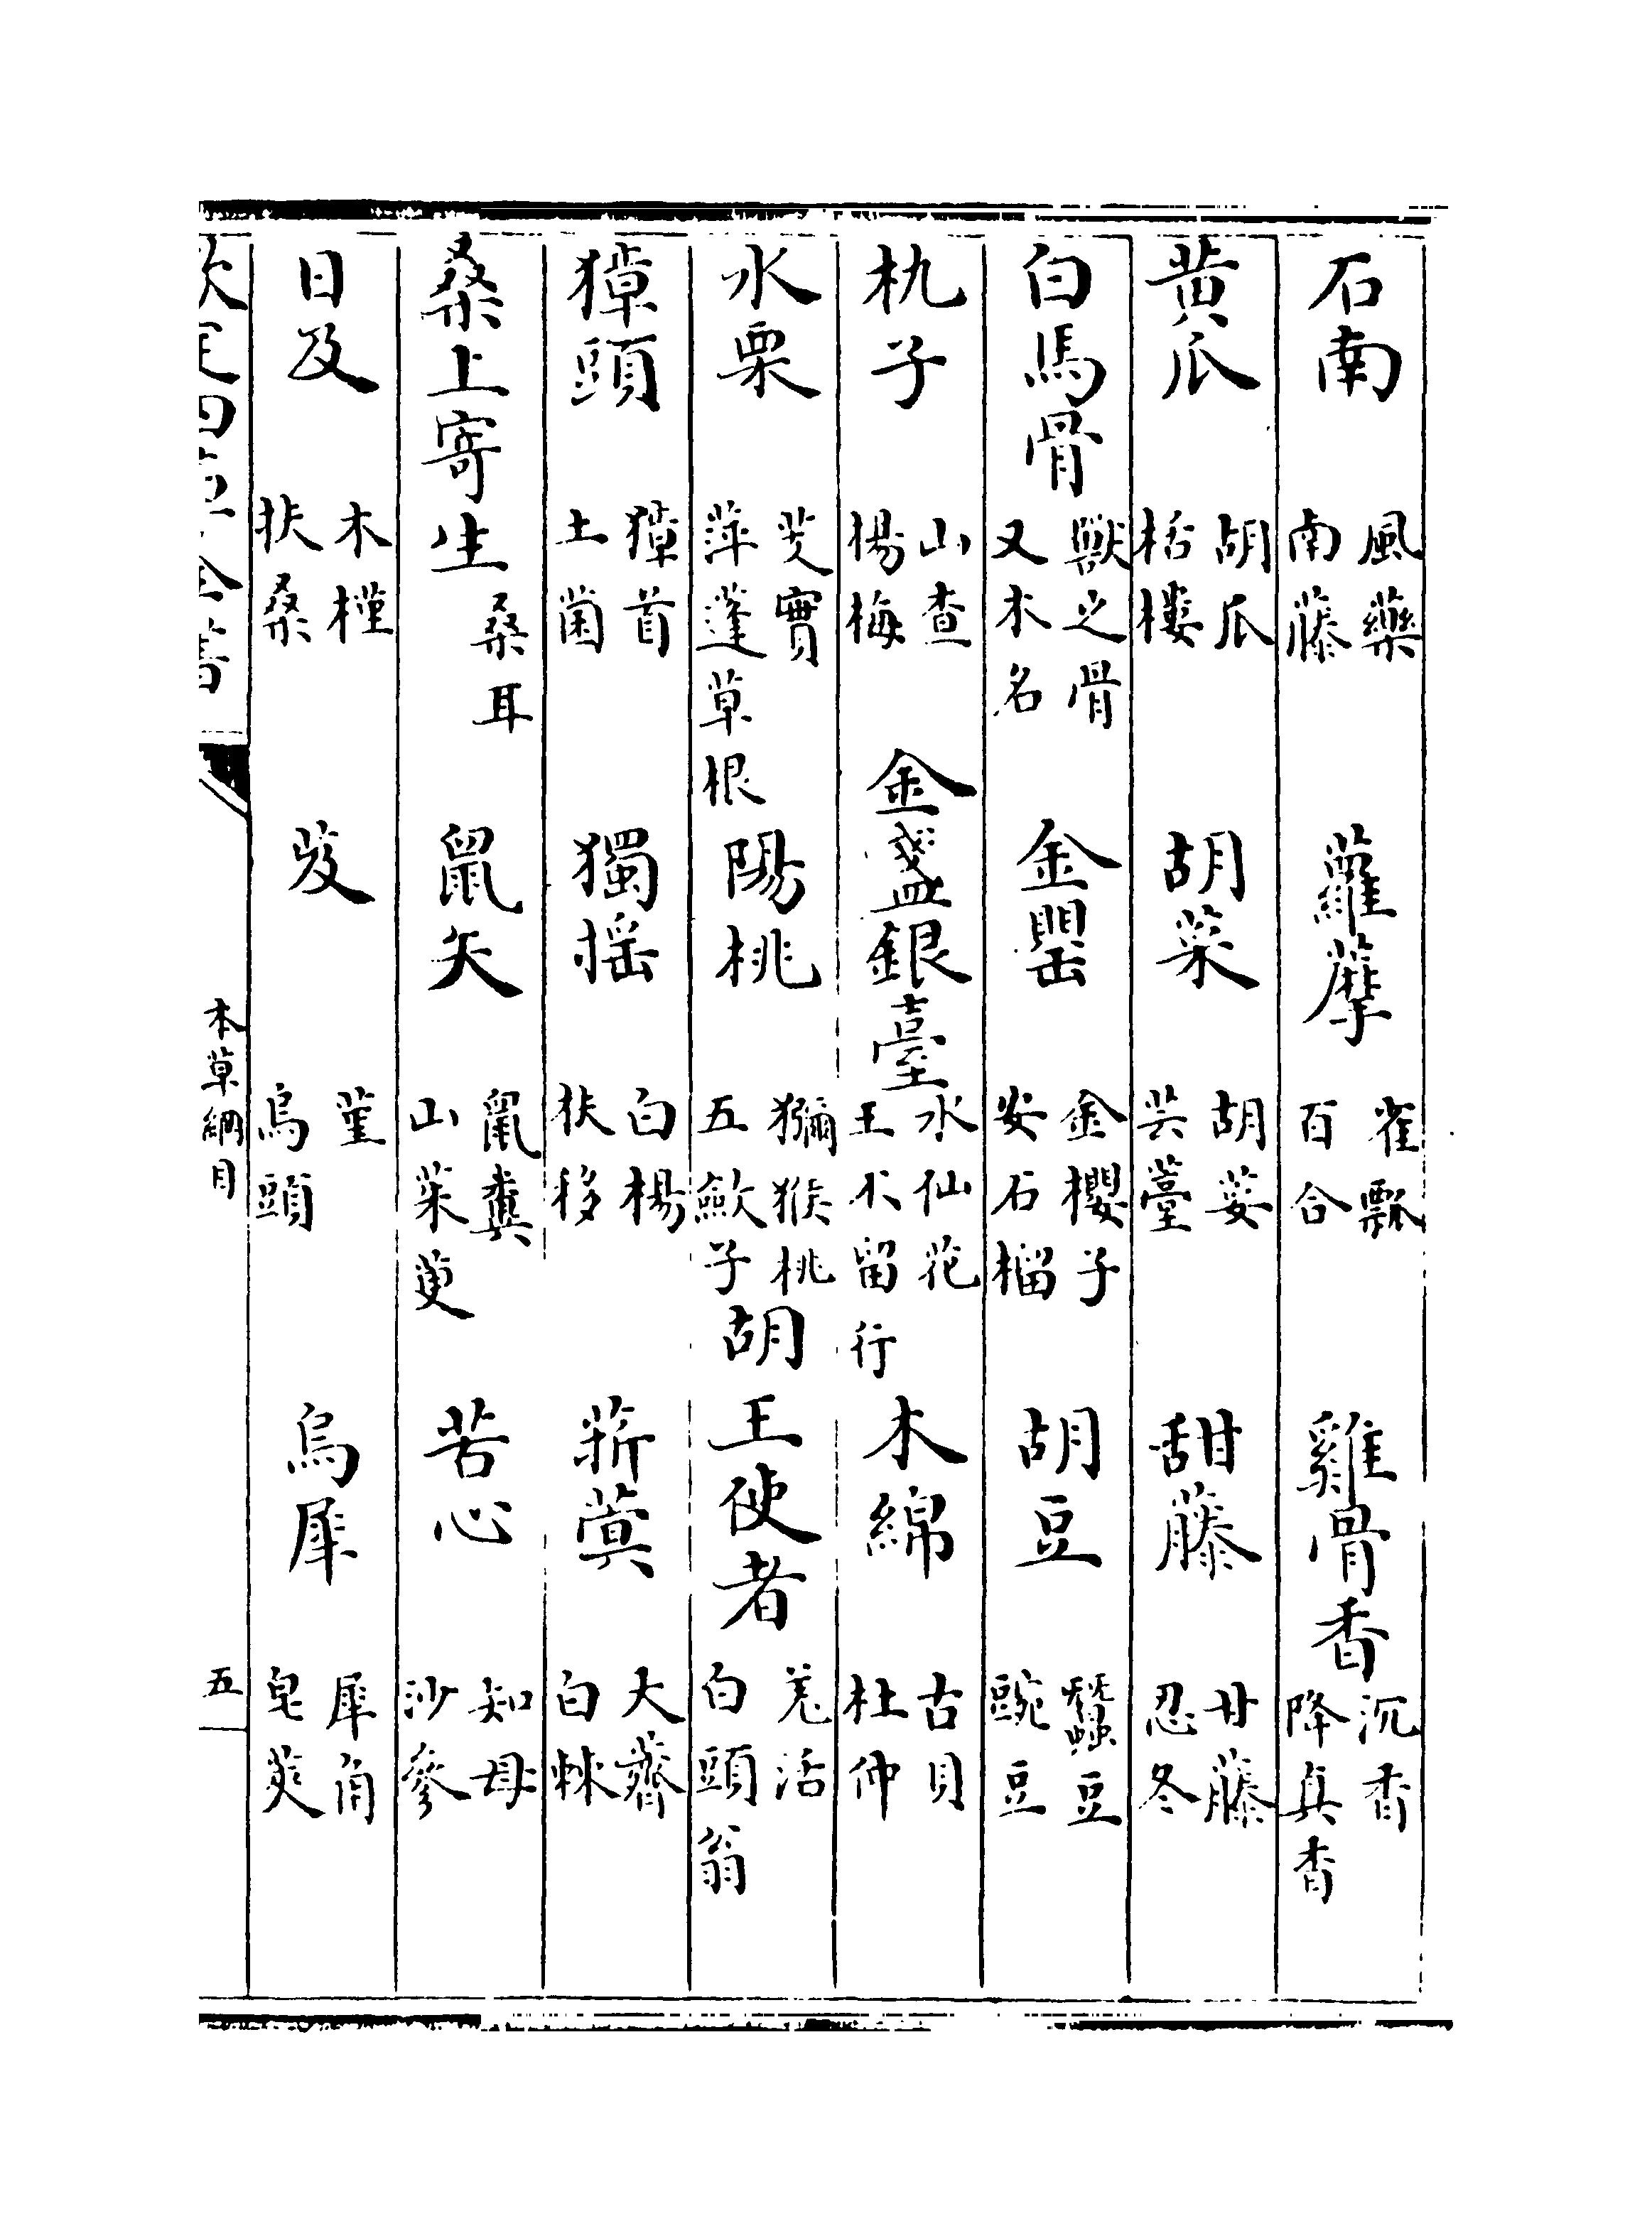 石南 風藥 南藤 蘿藦 雀瓢 百合 雞骨香 沉香 降真香
黄瓜 胡瓜 栝樓 胡菜 胡荽 芸薹 甜藤 甘藤 忍冬
白馬骨 獸之骨 又木名 金罌 金櫻子 安石榴 胡豆 蠶豆 豌豆
杋子 山查 楊梅 金盞銀臺 水仙花 王不留行 木綿 古貝 杜仲
水栗 芰實 萍蓬草根 陽桃 獼猴桃 五歛子 胡王使者 羌活 白頭翁
獐頭 獐首 土菌 獨揺 白楊 扶栘 菥蓂 大薺 白棘
桑上寄生 桑耳 鼠矢 鼠糞 山茱萸 苦心 知母 沙參
日及 木槿 扶桑 芨 菫 烏頭 烏犀 犀角 皂莢
欽定四庫全書 本草綱目 五